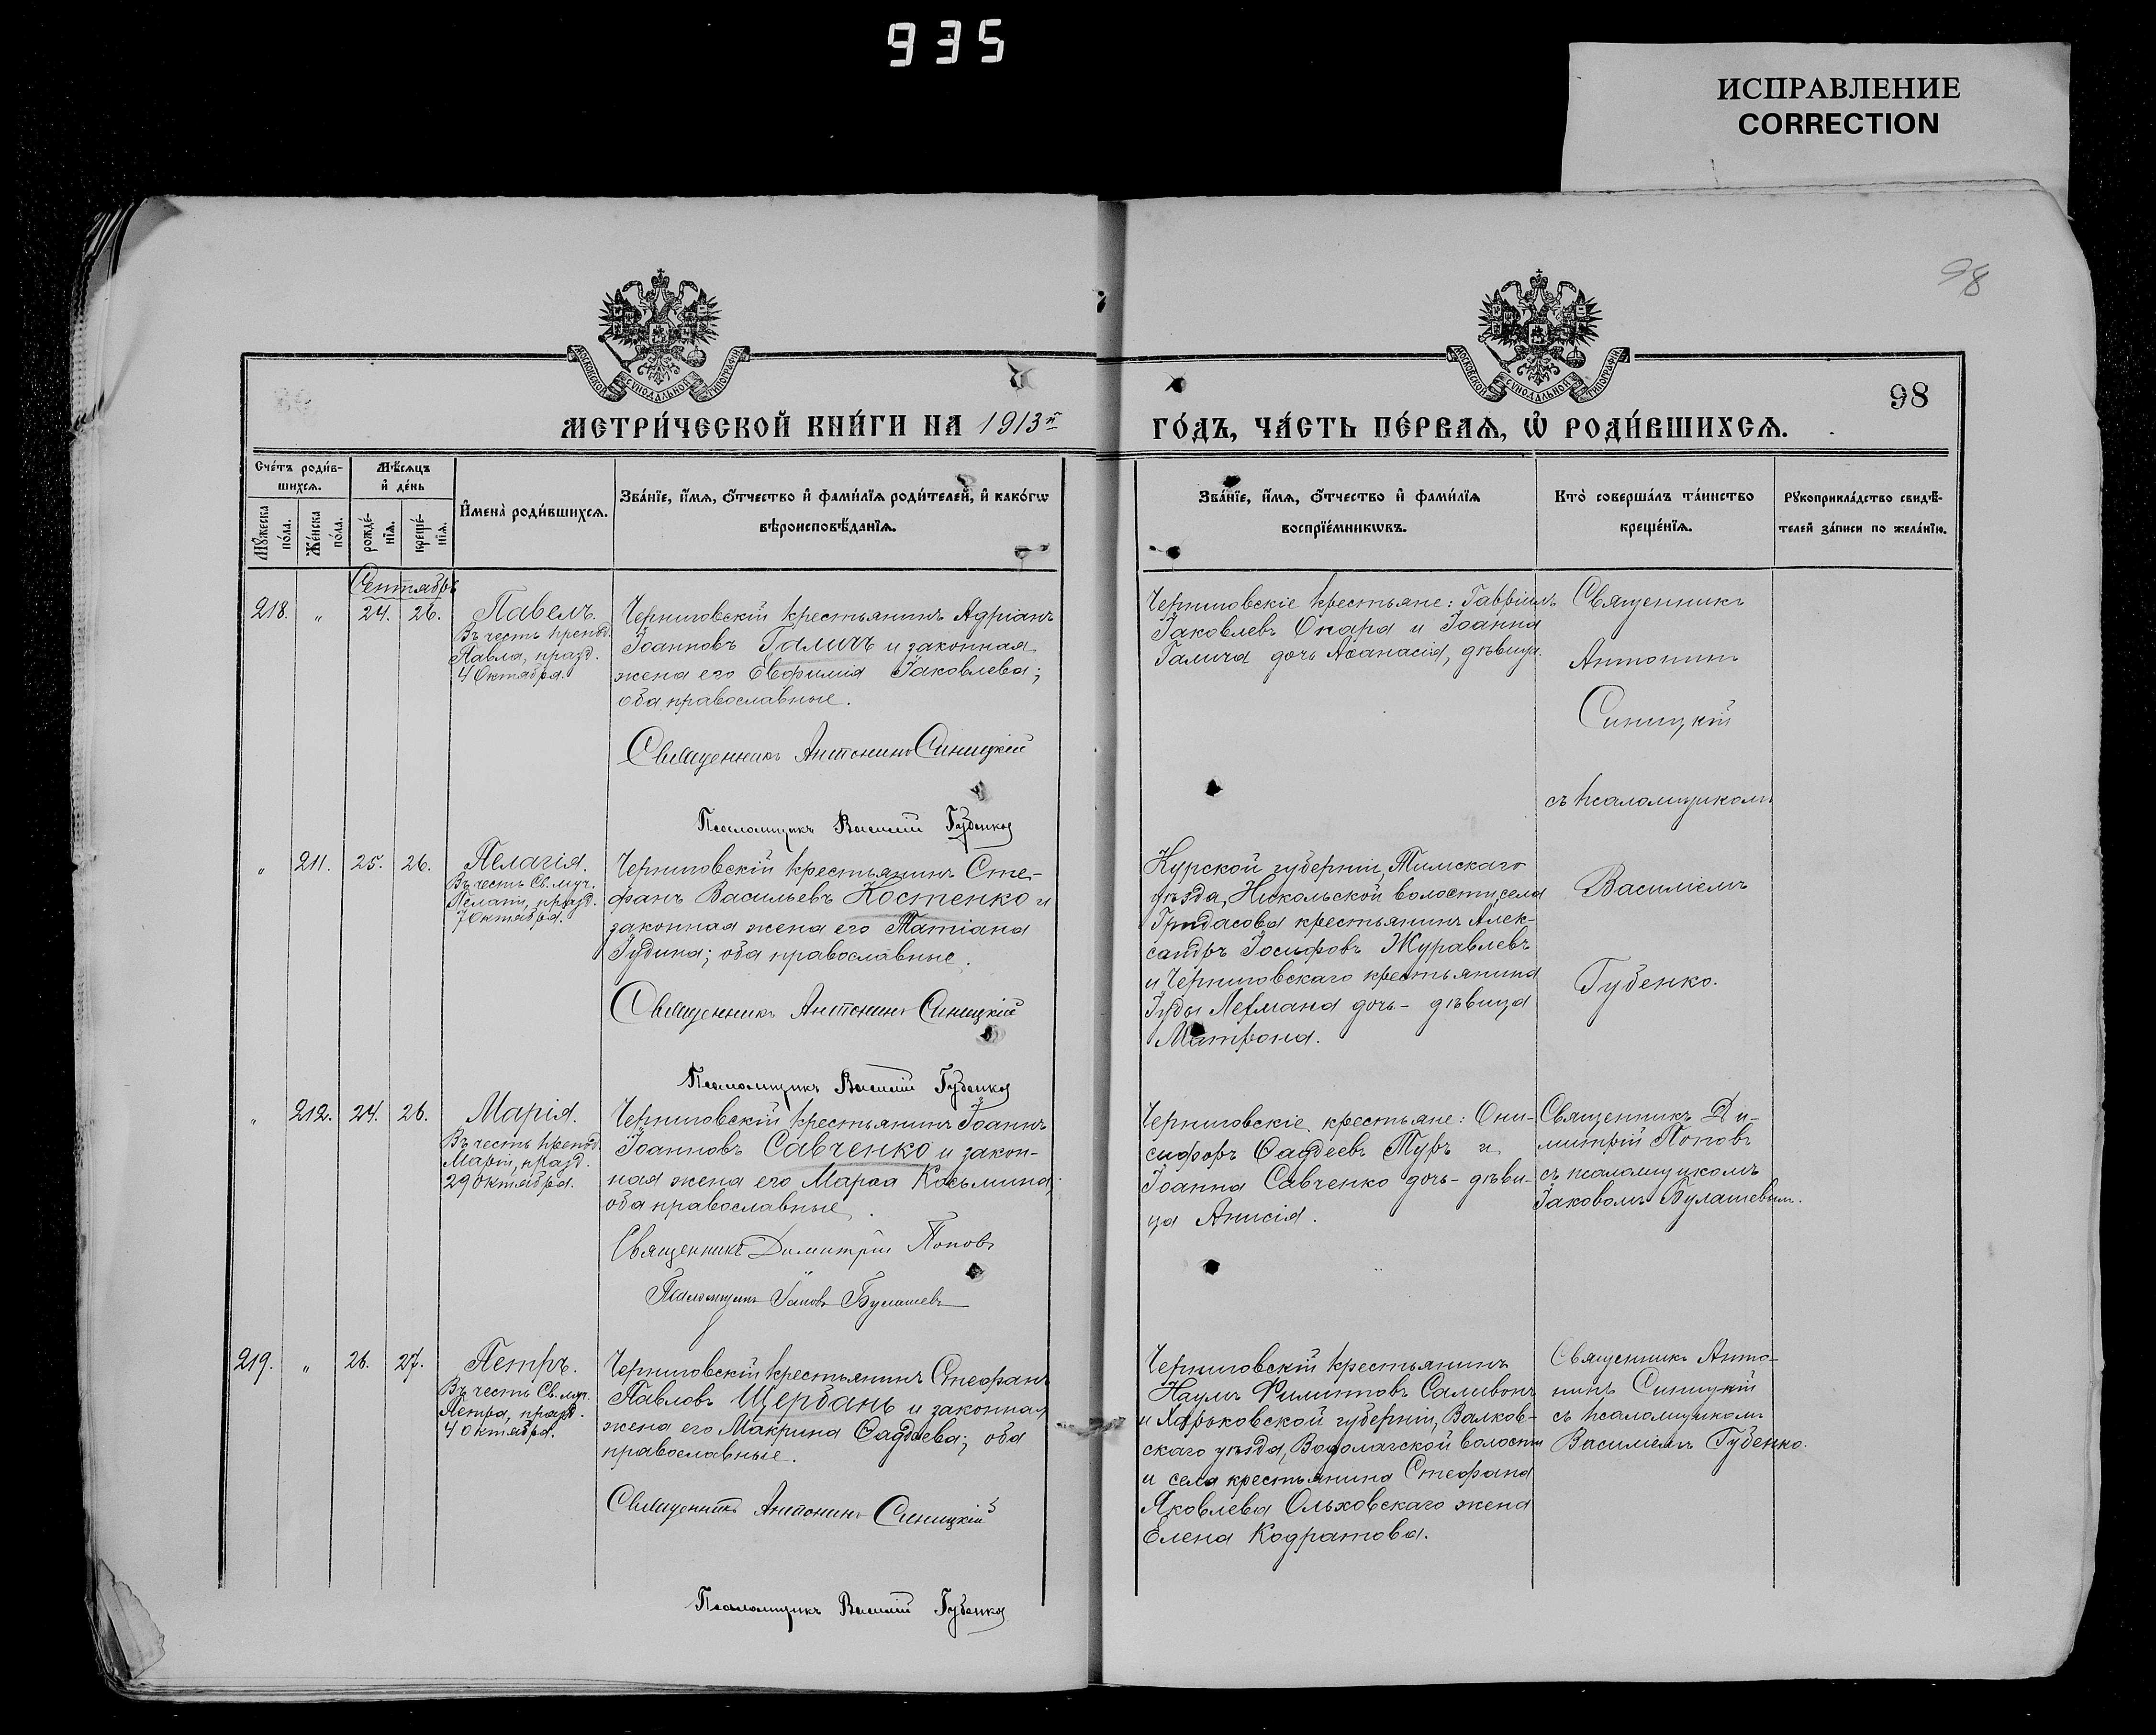 935
ИСПРАВЛЕНИЕ
CORRECTION
98
98
МОСКОВСКОЙ СУНОДАЛЬНОЙ ТИПОГРАФІИ
МОСКОВСКОЙ СУНОДАЛЬНОЙ ТИПОГРАФІИ
МЕТРИ́ЧЕСКОЙ КНИ́ГИ НА 1913й
ГО́ДЪ, ЧА́СТЬ ПЕ́РВАѦ, Ѡ҆ РОДИ́ВШИХСѦ.
Сче́тъ роди́в-
шихсѧ.
Мѣ́сѧцъ
и҆ де́нь
Мꙋ́жеска
по́ла.
Же́нска
по́ла.
рожде́-
нїѧ.
креще́-
нїѧ.
И҆мена̀ роди́вшихсѧ.
Зва́нїе, и҆́мѧ, ѻ҆́тчество и҆ фами́лїѧ роди́телей, и҆ како́гѡ
вѣроисповѣ́данїѧ.
Зва́нїе, и҆́мѧ, ѻ҆́тчество и҆ фами́лїѧ
воспрїе́мникѡвъ.
Кто̀ соверша́лъ та́инство
креще́нїѧ.
Рꙋкоприкла́дство свидѣ́-
телей за́писи по жела́нїю.
Сентябрь
218. " 24. 26. Павелъ.
Въ честь препод.
Павла, празд.
4 Октября.
Черниговскій крестьянинъ Адріанъ
Іоанновъ Галичъ и законная
жена его Евфимія Іаковлева;
оба православные.
Священникъ Антонинъ Синицкій
Псаломщикъ Василій Губенко
Черниговскіе крестьяне: Гавріилъ
Іаковлевъ Скара и Іоанна
Галича дочь Аѳанасія, дѣвица.
Священникъ
Антонинъ
Синицкій
съ псаломщикомъ
Василіемъ
Губенко.
" 211. 25. 26. Пелагія.
Въ честь Св. муч.
Пелагіи, празд.
7 Октября.
Черниговскій крестьянинъ Сте-
фанъ Васильевъ Костенко и
законная жена его Татіана
Іудина; оба православные.
Священникъ Антонинъ Синицкій
Псаломщикъ Василій Губенко
Курской губерніи, Тимскаго
уѣзда, Никольской волости, села
крестьянинъ Алек-
сандръ Іосифовъ Журавлевъ
и Черниговскаго крестьянина
Іуды дочь - дѣвица
Матрона.
" 212. 24. 26. Марія.
Въ честь препод.
Маріи, празд.
29 Октября.
Черниговскій крестьянинъ Іоаннъ
Іоанновъ Савченко и закон-
ная жена его Марѳа Косьмина;
оба православные.
Священникъ Димитрій Поповъ
Псаломщикъ Іаковъ Булашевъ
Черниговскіе крестьяне: Они-
сифоръ Ѳаддеевъ Туръ и
Іоанна Савченко дочь - дѣви-
ца Анисія.
Священникъ Ди-
митрій Поповъ
съ псаломщикомъ
Іаковомъ Булашевым.
219. " 26. 27. Петръ.
Въ честь Св. муч.
Петра, празд.
4 Октября.
Черниговскій крестьянинъ Стефанъ
Павловъ Щербань и законная
жена его Макрина Ѳаддеева; оба
православные.
Священникъ Антонинъ Синицкій
Псаломщикъ Василій Губенко
Черниговскій крестьянинъ
Наумъ Филиповъ Саливонъ
и Харьковской губерніи, Валков-
скаго уѣзда, Водолагской волости
и села крестьянина Стефана
Яковлева Ольховскаго жена
Елена Кодратова.
Священникъ Анто-
нинъ Синицкій
съ псаломщикомъ
Василіемъ Губенко.